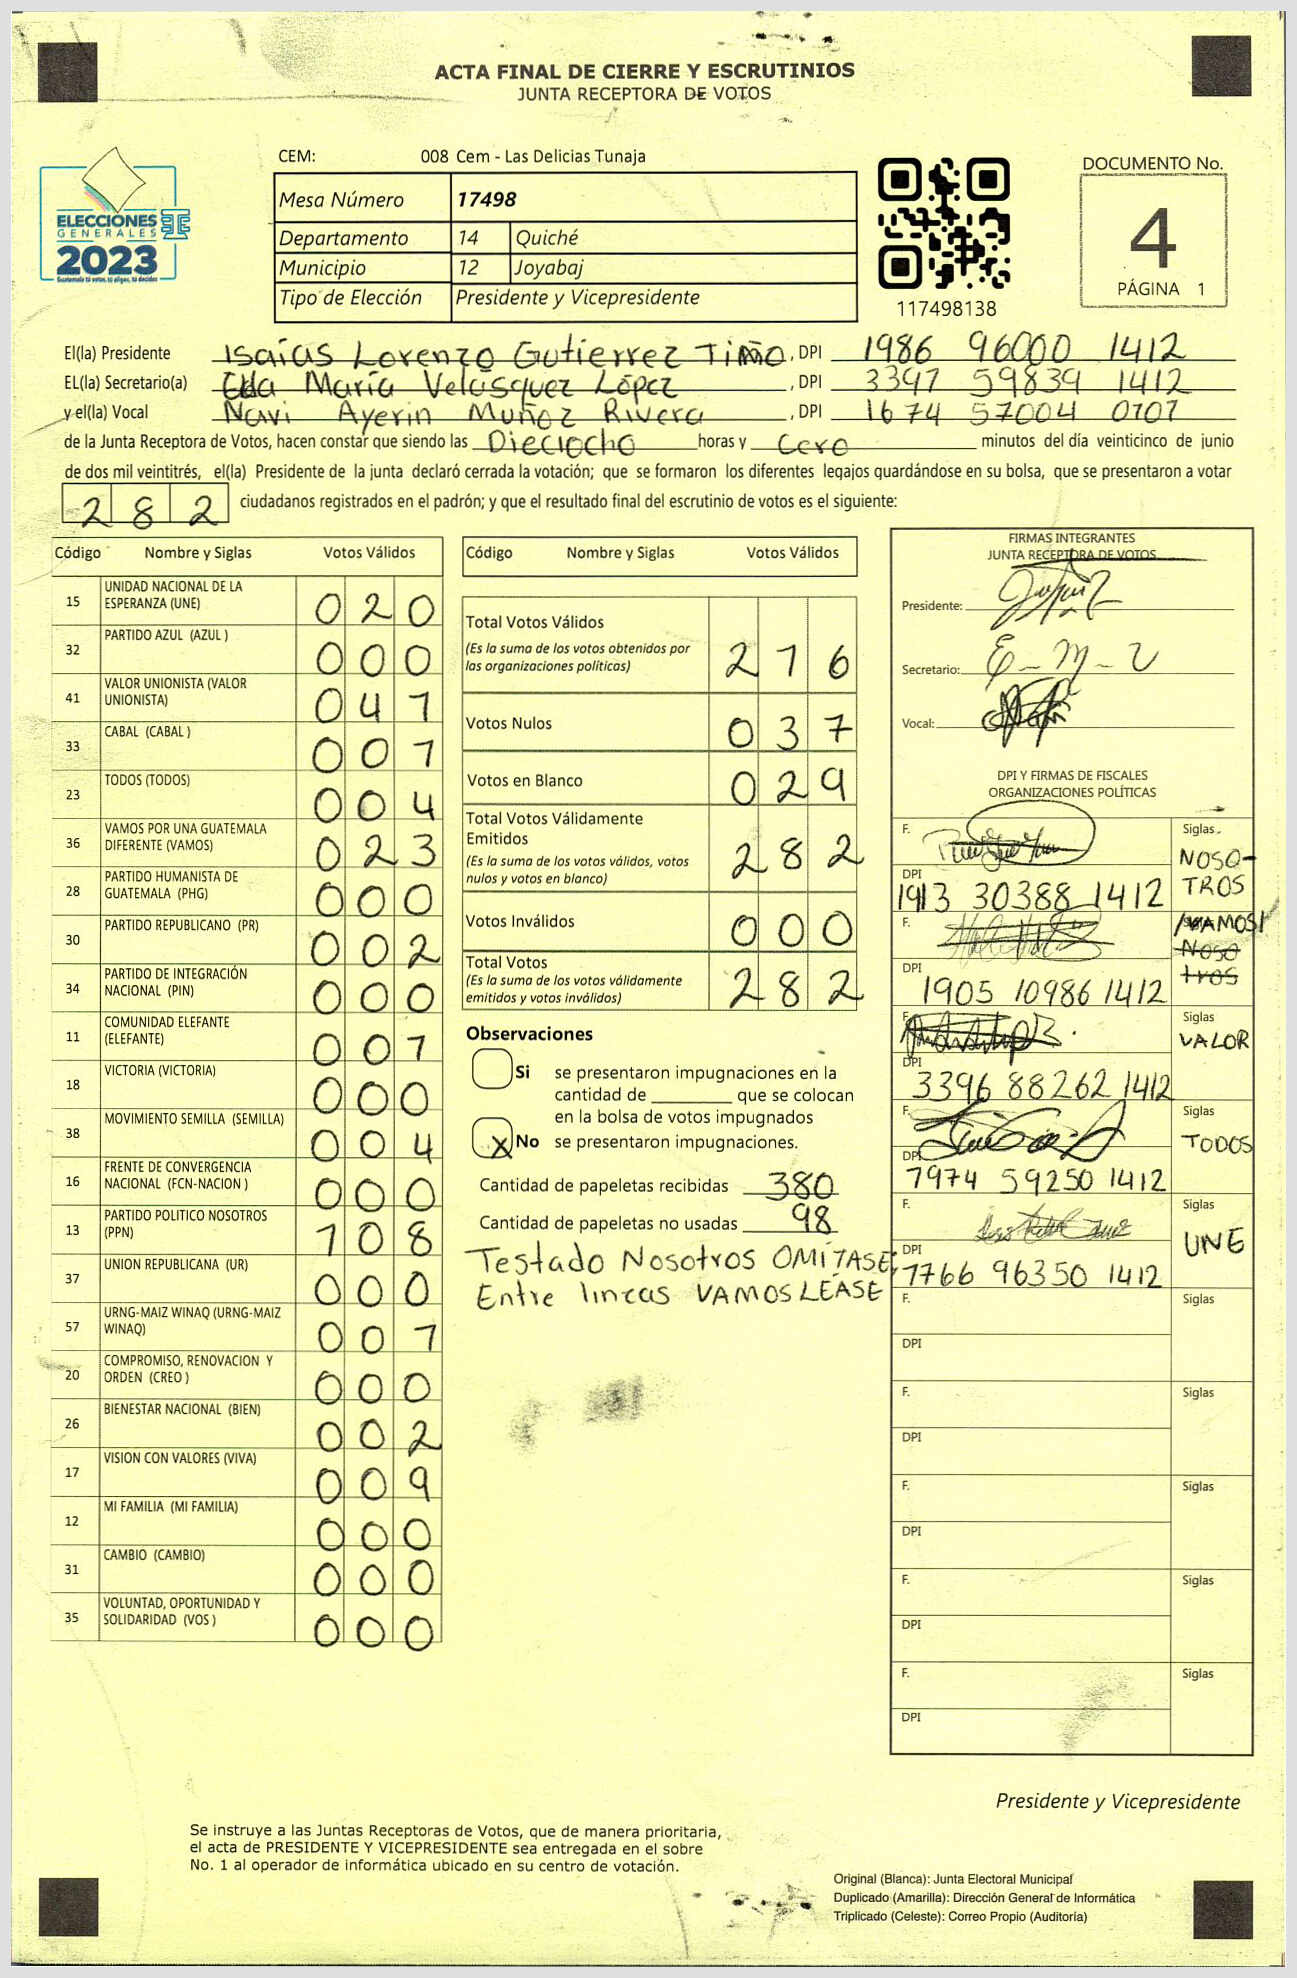 ACTA FINAL DE CIERRE Y ESCRUTINIOS
JUNTA RECEPTORA DE VOTOS
CEM: 008 Cem - Las Delicias Tunaja
Mesa Número 17498
Departamento 14 Quiché
Municipio 12 Joyabaj
Tipo de Elección Presidente y Vicepresidente
ELECCIONES
GENERALES
2023
Guatemala tú votas, tú eliges, tú decides
117498138
DOCUMENTO No.
4
PÁGINA 1
El(la) Presidente Isaías Lorenzo Gutierrez Timo, DPI 1986 96000 1412
EL(la) Secretario(a) Elda María Velásquez López, DPI 3397 59839 1412
y el(la) Vocal Navi Ayerin Muñoz Rivera, DPI 1674 57004 0101
de la Junta Receptora de Votos, hacen constar que siendo las Dieciocho horas y Cero minutos del día veinticinco de junio
de dos mil veintitrés, el(la) Presidente de la junta declaró cerrada la votación; que se formaron los diferentes legajos guardándose en su bolsa, que se presentaron a votar
282 ciudadanos registrados en el padrón; y que el resultado final del escrutinio de votos es el siguiente:
Código Nombre y Siglas Votos Válidos
15 UNIDAD NACIONAL DE LA ESPERANZA (UNE) 020
32 PARTIDO AZUL (AZUL ) 000
41 VALOR UNIONISTA (VALOR UNIONISTA) 041
33 CABAL (CABAL ) 001
23 TODOS (TODOS) 004
36 VAMOS POR UNA GUATEMALA DIFERENTE (VAMOS) 023
28 PARTIDO HUMANISTA DE GUATEMALA (PHG) 000
30 PARTIDO REPUBLICANO (PR) 002
34 PARTIDO DE INTEGRACIÓN NACIONAL (PIN) 000
11 COMUNIDAD ELEFANTE (ELEFANTE) 001
18 VICTORIA (VICTORIA) 000
38 MOVIMIENTO SEMILLA (SEMILLA) 004
16 FRENTE DE CONVERGENCIA NACIONAL (FCN-NACION ) 000
13 PARTIDO POLITICO NOSOTROS (PPN) 108
37 UNION REPUBLICANA (UR) 000
57 URNG-MAIZ WINAQ (URNG-MAIZ WINAQ) 001
20 COMPROMISO, RENOVACION Y ORDEN (CREO ) 000
26 BIENESTAR NACIONAL (BIEN) 002
17 VISION CON VALORES (VIVA) 009
12 MI FAMILIA (MI FAMILIA) 000
31 CAMBIO (CAMBIO) 000
35 VOLUNTAD, OPORTUNIDAD Y SOLIDARIDAD (VOS ) 000
Código Nombre y Siglas Votos Válidos
Total Votos Válidos 216
(Es la suma de los votos obtenidos por
las organizaciones políticas)
Votos Nulos 037
Votos en Blanco 029
Total Votos Válidamente
Emitidos 282
(Es la suma de los votos válidos, votos
nulos y votos en blanco)
Votos Inválidos 000
Total Votos 282
(Es la suma de los votos válidamente
emitidos y votos inválidos)
Observaciones
Si se presentaron impugnaciones en la
cantidad de ________ que se colocan
en la bolsa de votos impugnados
X No se presentaron impugnaciones.
Cantidad de papeletas recibidas 380
Cantidad de papeletas no usadas 98
Testado Nosotros OMÍTASE;
Entre lineas VAMOS LÉASE
FIRMAS INTEGRANTES
JUNTA RECEPTORA DE VOTOS
Presidente:
Secretario: E-M-V
Vocal:
DPI Y FIRMAS DE FISCALES
ORGANIZACIONES POLÍTICAS
F. Siglas
NOSO-
TROS
DPI 1913 30388 1412
F. /VAMOS/
Noso
tros
DPI 1905 10986 1412
F. Siglas
VALOR
DPI 3396 88262 1412
F. Siglas
TODOS
DPI 7974 59250 1412
F. Siglas
UNE
DPI 1766 96350 1412
F. Siglas
DPI
F. Siglas
DPI
F. Siglas
DPI
F. Siglas
DPI
F. Siglas
DPI
Presidente y Vicepresidente
Se instruye a las Juntas Receptoras de Votos, que de manera prioritaria,
el acta de PRESIDENTE Y VICEPRESIDENTE sea entregada en el sobre
No. 1 al operador de informática ubicado en su centro de votación.
Original (Blanca): Junta Electoral Municipal
Duplicado (Amarilla): Dirección General de Informática
Triplicado (Celeste): Correo Propio (Auditoría)